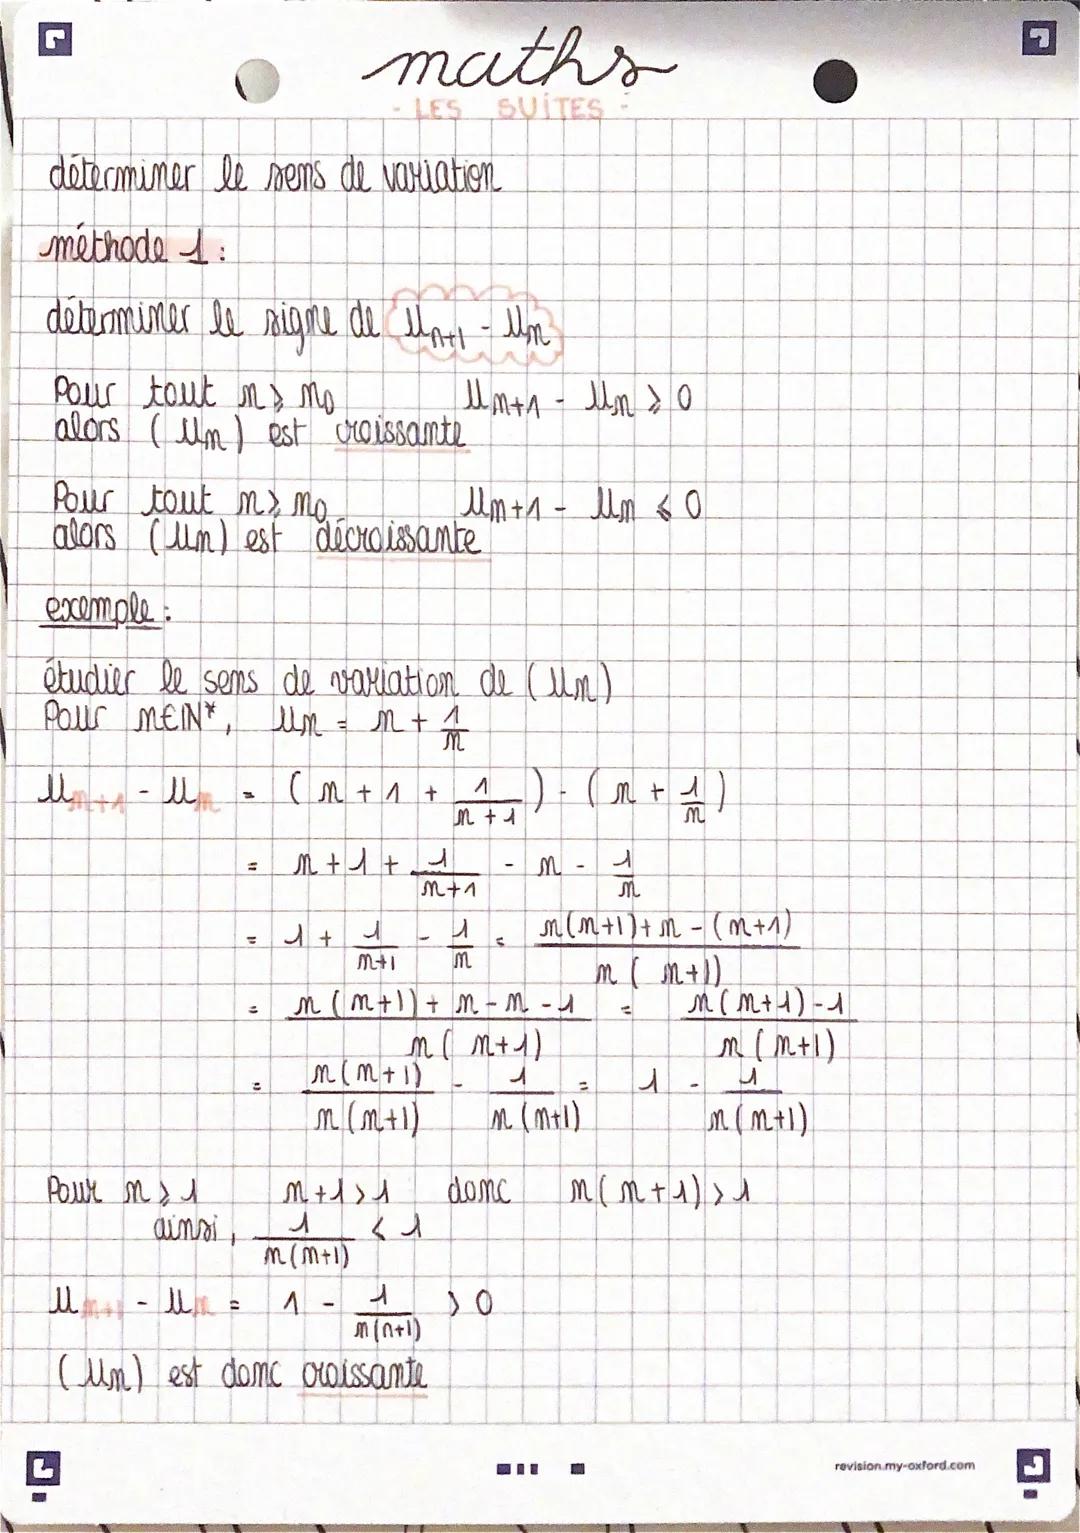 maths
- LES SUITES -
déterminer le sens de variation
méthode 1 :
déterminer le signe de Un+1 - Un
Pour tout n ⩾ n0 Un+1 - Un ⩾ 0
alors (Un) est croissante
Pour tout n ⩾ n0 Un+1 - Un ⩽ 0
alors (Un) est décroissante
exemple :
étudier le sens de variation de (Un)
Pour n∈IN*, Un = n + 1/n
Un+1 - Un = (n + 1 + 1/(n+1)) - (n + 1/n)
= n + 1 + 1/(n+1) - n - 1/n
= 1 + 1/(n+1) - 1/n = (n(n+1) + n - (n+1))/(n(n+1))
= (n(n+1) + n - n - 1)/(n(n+1)) = (n(n+1) - 1)/(n(n+1))
= n(n+1)/(n(n+1)) - 1/(n(n+1)) = 1 - 1/(n(n+1))
Pour n ⩾ 1 n+1 > 1 donc n(n+1) > 1
ainsi, 1/(n(n+1)) < 1
Un+1 - Un = 1 - 1/(n(n+1)) > 0
(Un) est donc croissante
revision.my-oxford.com